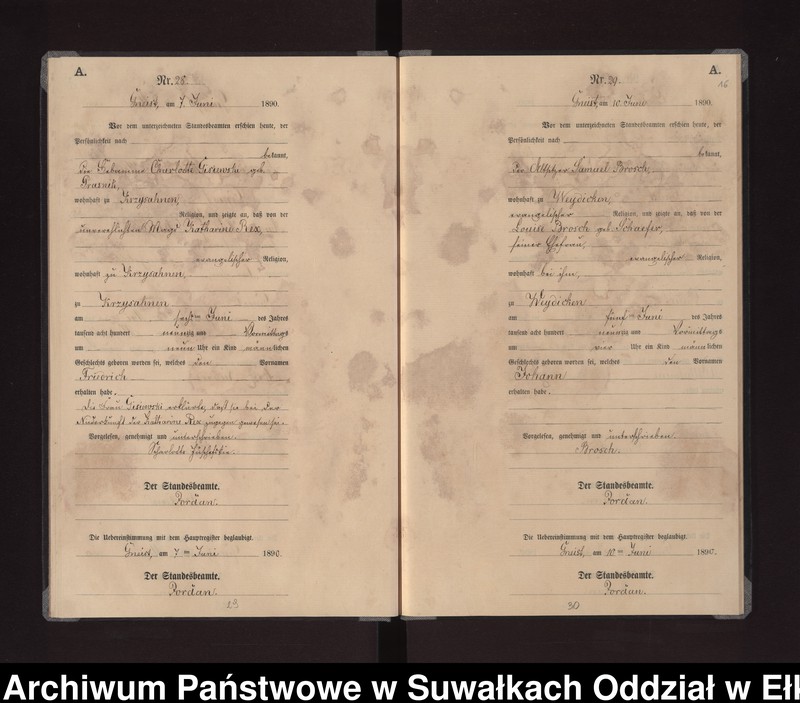 A.
Nr. 28.
Gneist, am 7. Juni 1890.
Vor dem unterzeichneten Standesbeamten erschien heute, der
Persönlichkeit nach
bekannt,
die Hebamme Charlotte geb.
wohnhaft zu Krzysahnen,
Religion, und zeigte an, daß von der
unverehelichten Magd Katharine Rex,
evangelischer Religion,
wohnhaft zu Krzysahnen,
zu Krzysahnen
am Juni des Jahres
tausend acht hundert neunzig und Vormittags
um neun Uhr ein Kind männlichen
Geschlechts geboren worden sei, welches den Vornamen
Friedrich
erhalten habe.
Die Frau erklärte, daß sie bei der
Niederkunft der Katharine Rex zugegen gewesen sei.
Vorgelesen, genehmigt und unterschrieben.
Der Standesbeamte.
Jordan.
Die Uebereinstimmung mit dem Hauptregister beglaubigt.
Gneist, am 7ten Juni 1890.
Der Standesbeamte.
Jordan.
29
A.
16
Nr. 29.
Gneist, am 10. Juni 1890.
Vor dem unterzeichneten Standesbeamten erschien heute, der
Persönlichkeit nach
bekannt,
der Altsitzer Samuel Brosch,
wohnhaft zu Weydicken,
evangelischer Religion, und zeigte an, daß von der
Louise Brosch geb. Schaefer,
seiner Ehefrau,
evangelischer Religion,
wohnhaft bei ihm,
zu Weydicken
am fünften Juni des Jahres
tausend acht hundert neunzig und Vormittags
um vier Uhr ein Kind männlichen
Geschlechts geboren worden sei, welches den Vornamen
Johann
erhalten habe.
Vorgelesen, genehmigt und unterschrieben.
Brosch.
Der Standesbeamte.
Jordan.
Die Uebereinstimmung mit dem Hauptregister beglaubigt.
Gneist, am 10ten Juni 1890.
Der Standesbeamte.
Jordan.
30
Archiwum Państwowe w Suwałkach Oddział w Ełk